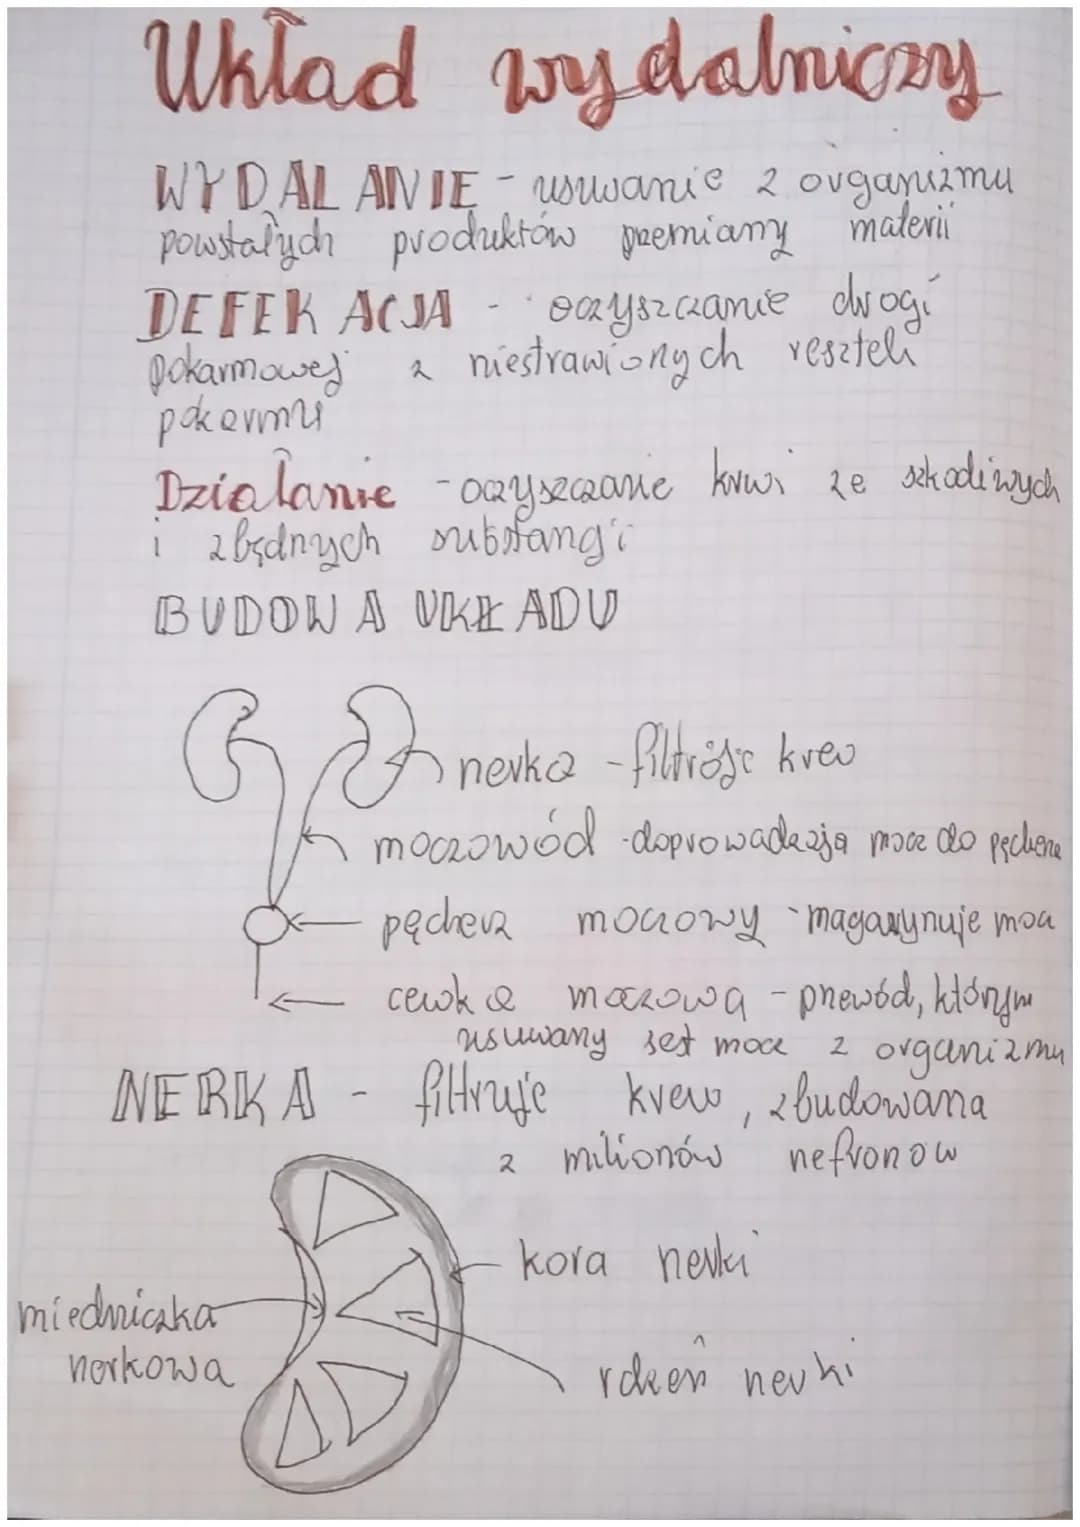 Układ wydalniczy
WYDALANIE - usuwanie z organizmu
powstałych produktów przemiany materii
DEFEKACJA - oczyszczanie drogi
pokarmowej z niestrawionych resztek
pokarmu
Działanie - oczyszczanie krwi ze szkodliwych
i zbędnych substancji
BUDOWA UKŁADU
nerka - filtruje krew
moczowód - doprowadzają mocz do pęcherza
pęcherz moczowy - magazynuje mocz
cewka moczowa - przewód, którym
usuwany jest mocz z organizmu
NERKA - filtruje krew, zbudowana
z milionów nefronów
kora nerki
miedniczka
nerkowa
rdzeń nerki